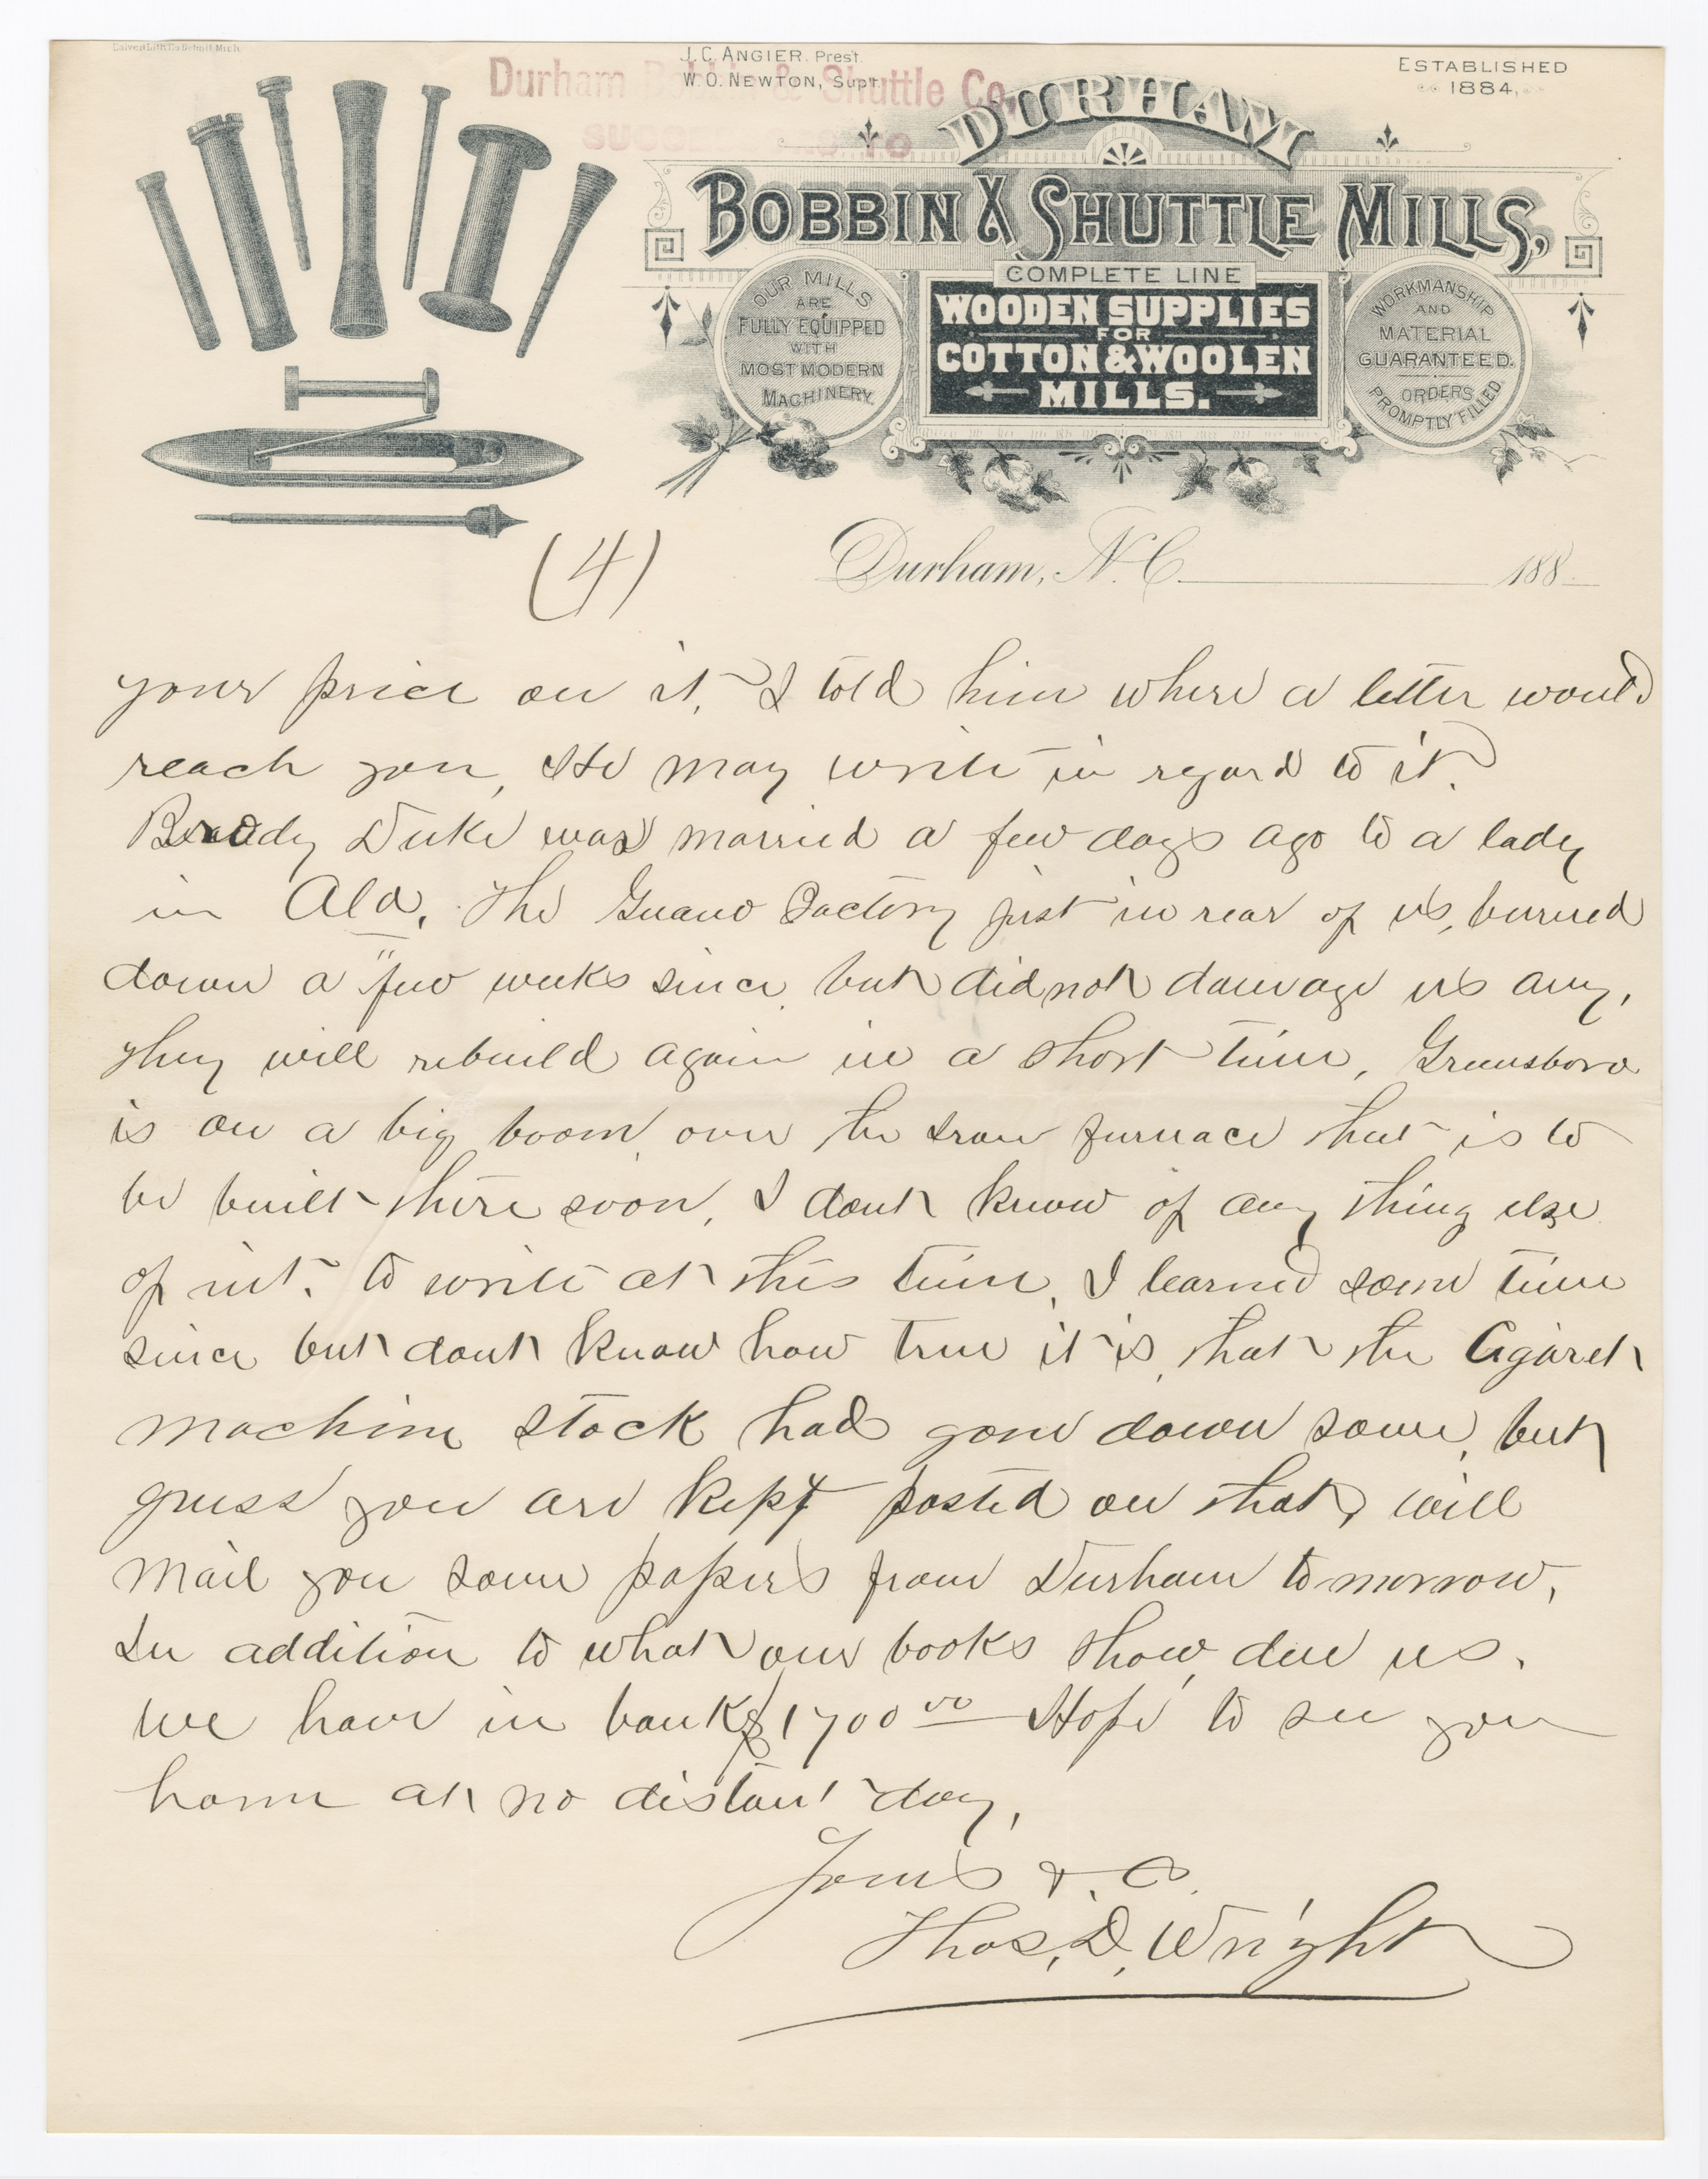 Calvert Lith. Co. Detroit Mich.
J. C. ANGIER, Prest.
W. O. NEWTON, Supt.
ESTABLISHED
1884.
Durham Bobbin & Shuttle Co.
SUCCESSORS TO
DURHAM
BOBBIN & SHUTTLE MILLS,
OUR MILLS
ARE
FULLY EQUIPPED
WITH
MOST MODERN
MACHINERY.
COMPLETE LINE
WOODEN SUPPLIES
FOR
COTTON & WOOLEN
MILLS.
WORKMANSHIP
AND
MATERIAL
GUARANTEED.
ORDERS
PROMPTLY FILLED
(4)
Durham, N.C. 188
your price on it, I told him where a letter would
reach you, He may write in regard to it.
Brody Duke was married a few days ago to a lady
in Ala. The Guano Factory just in rear of us, burned
down a few weeks since, but did not damage us any,
They will rebuild again in a short time, Greensboro
is on a big boom, over the Iron furnace that is to
be built there soon, I dont know of any thing else
of int. to write at this time, I learned some time
since but dont know how true it is, that the Cigaret
machine stock had gone down some, but
guess you are kept posted on that, will
mail you some papers from Durham to-morrow,
In addition to what our books show, due us,
we have in bank $1700 00 Hope to see you
home at no distant day,
Yours &. C.
Thos, D, Wright